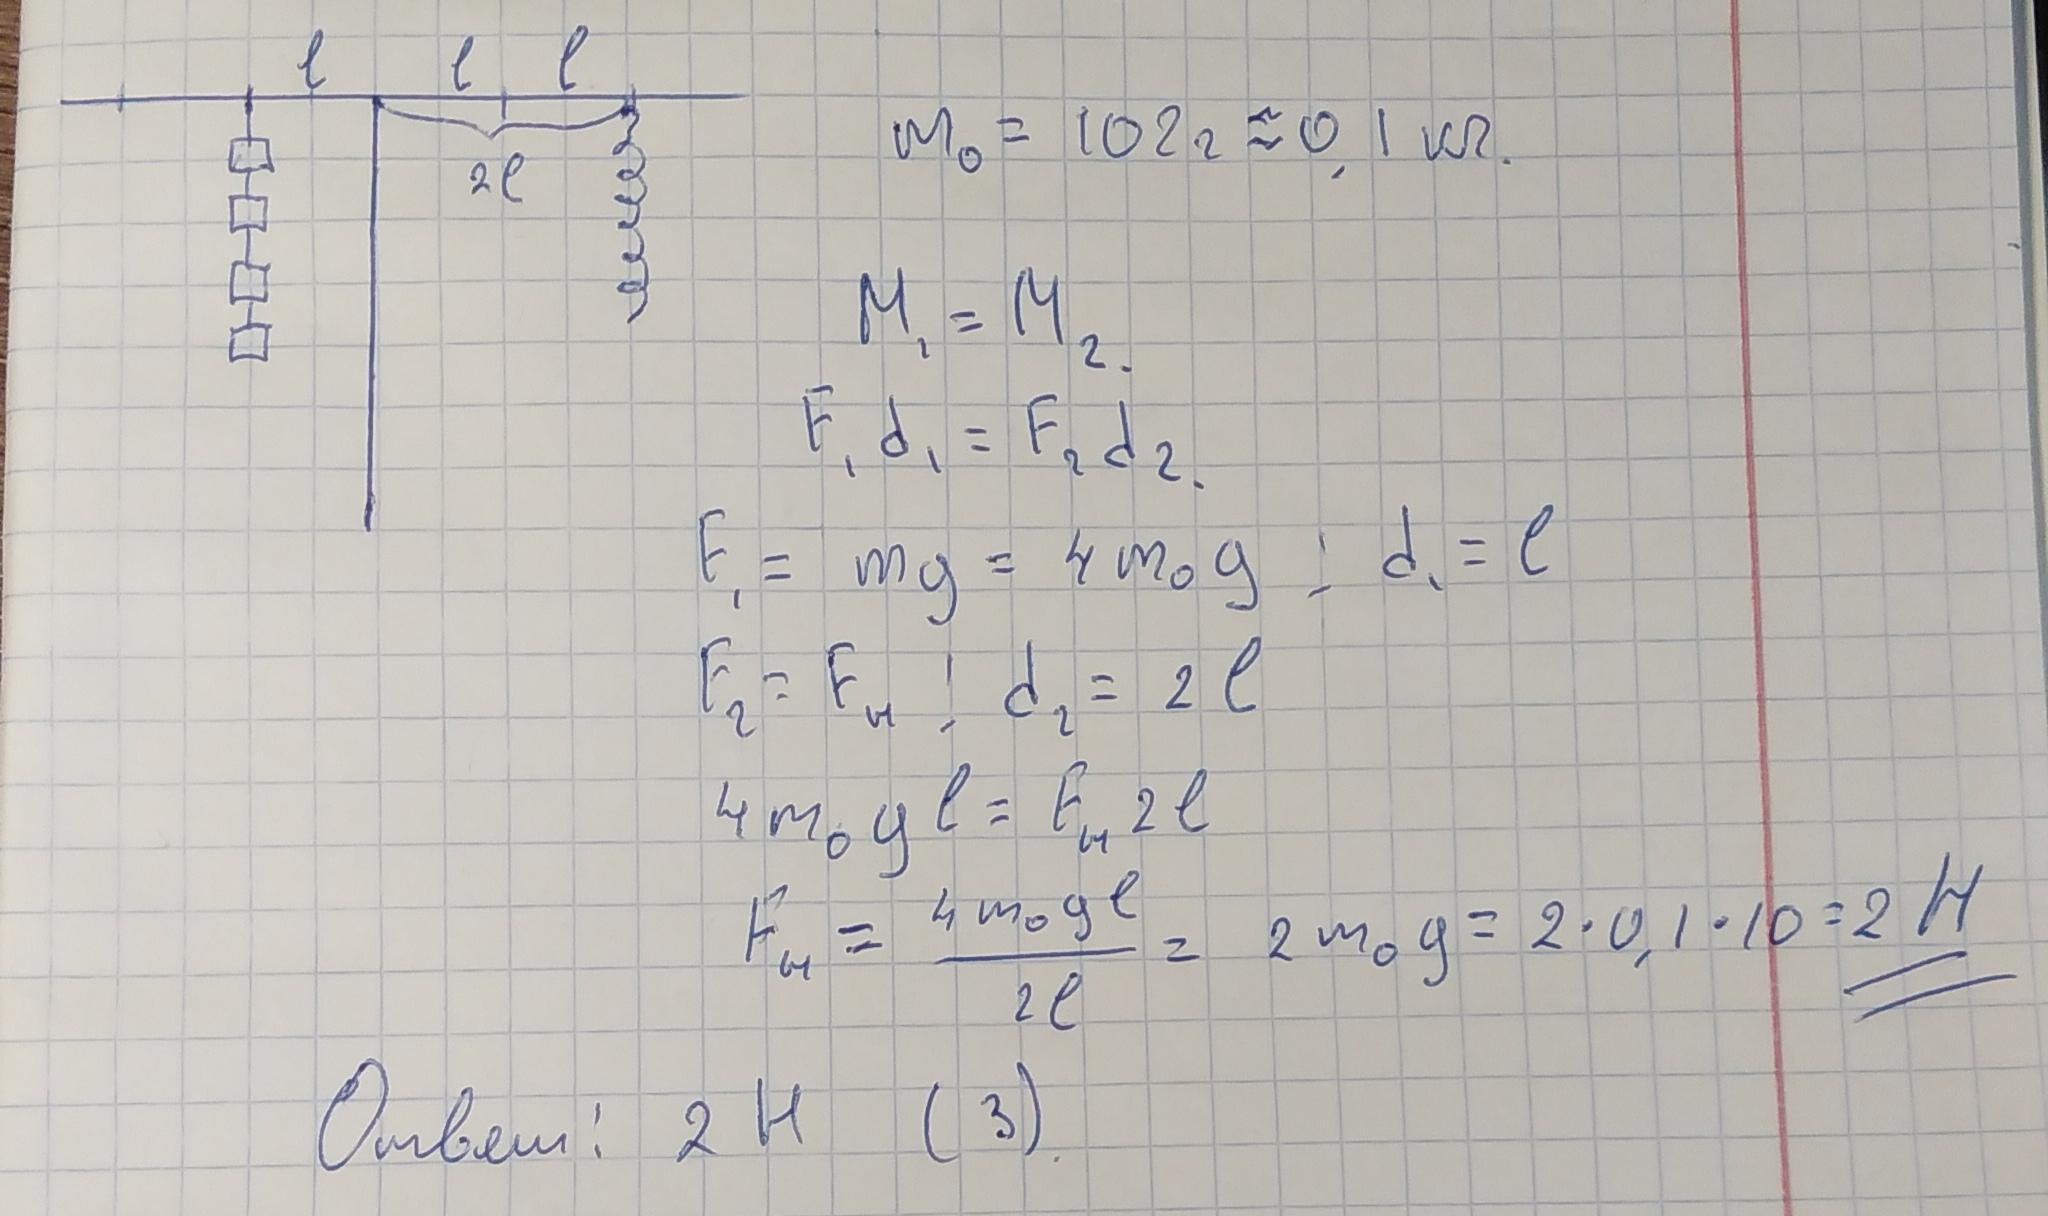 l l l
2l
m₀ = 102 г ≈ 0,1 кг.
M₁ = M₂.
F₁d₁ = F₂d₂.
F₁ = mg = 4m₀g ; d₁ = l
F₂ = Fн ; d₂ = 2l
4m₀gl = Fн 2l
Fн = 4m₀gl / 2l = 2m₀g = 2·0,1·10 = 2 Н
Ответ: 2 Н (3).